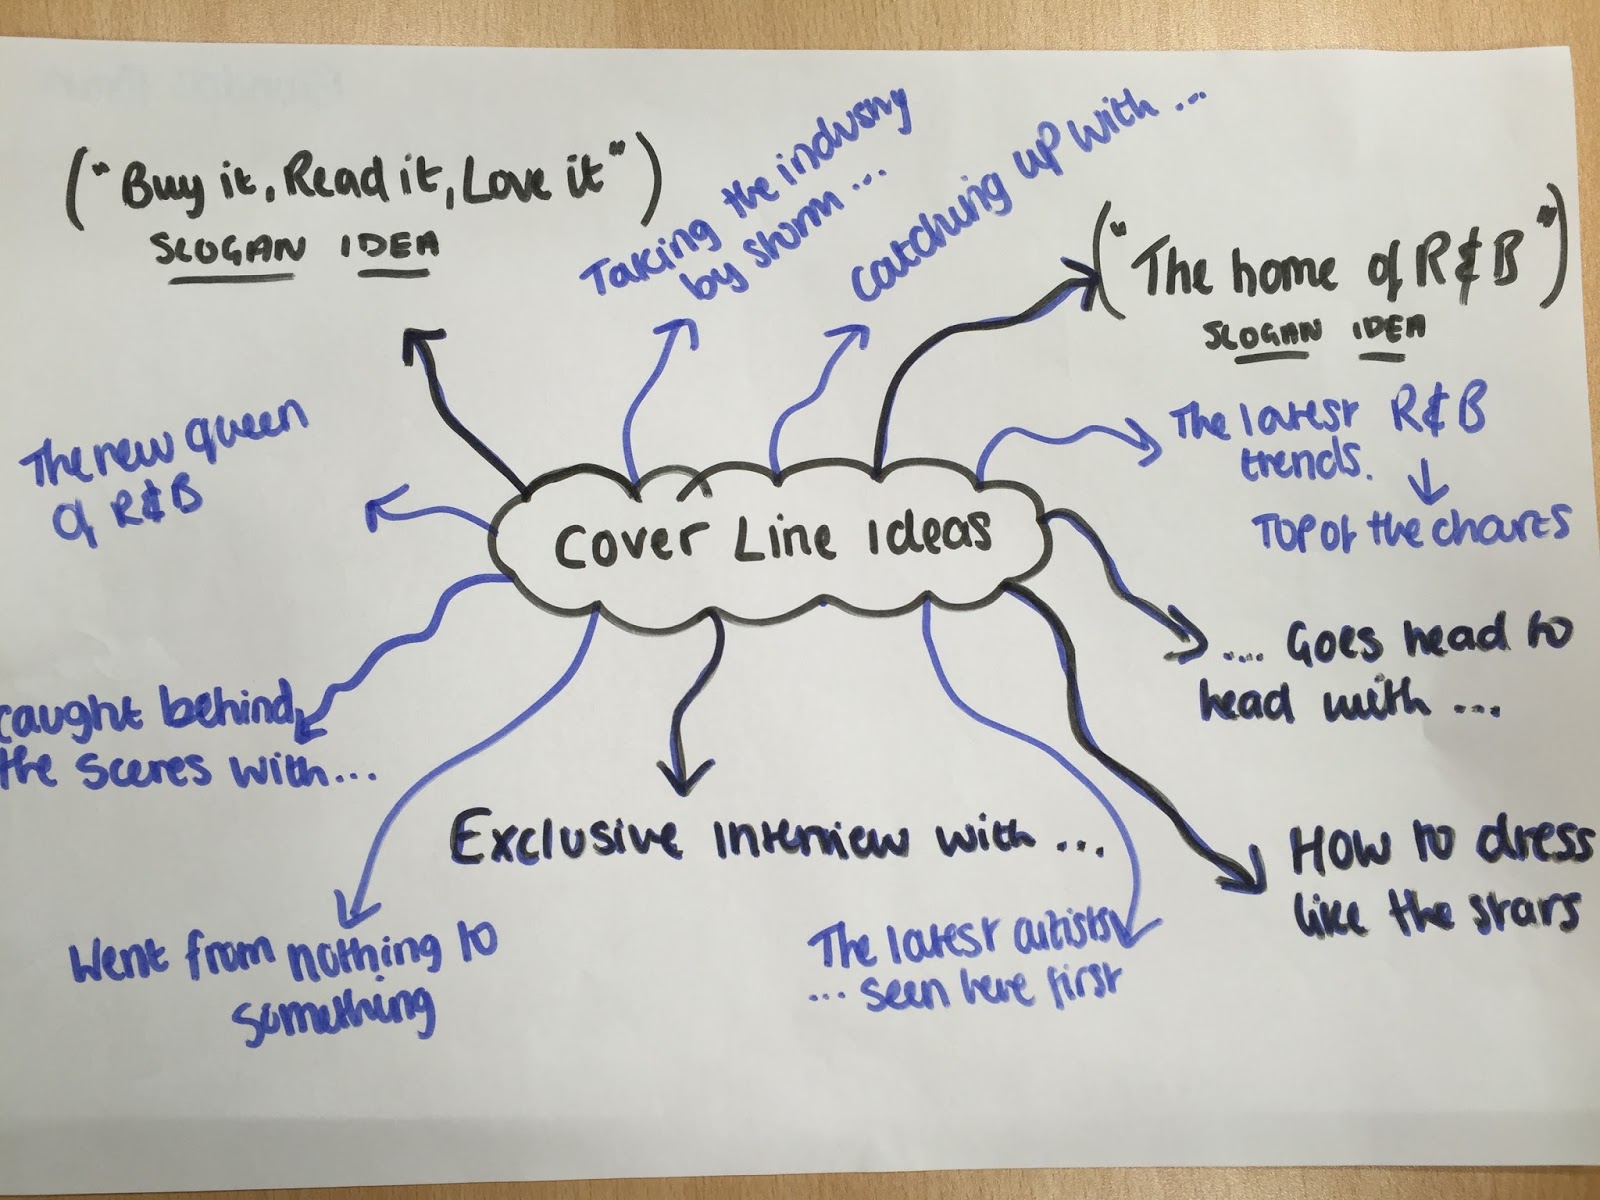 ("Buy it, Read it, Love it")
SLOGAN IDEA
Taking the industry
by storm ...
catching up with ...
("The home of R&B")
SLOGAN IDEA
The latest R&B
trends.
TOP of the charts
The new queen
of R&B
Cover Line Ideas
.... Goes head to
head with ...
caught behind
the scenes with...
Exclusive interview with ...
How to dress
like the stars
Went from nothing to
something
The latest artists
... seen here first